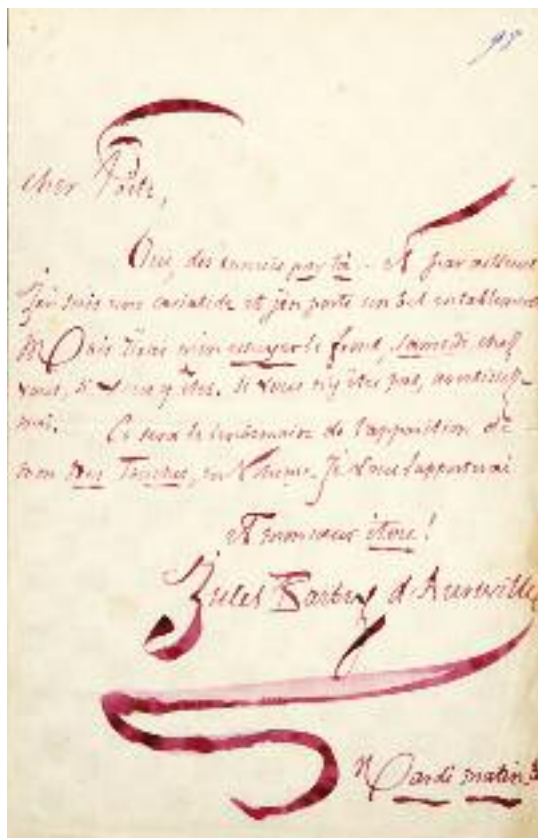 98
cher Poëte,
Oui, des ennuis par là – Et par ailleurs
Je suis une cariatide et j'en porte un bel entablement
Mais j'irai m'en essuyer le front, samedi chez
vous, si vous y êtes. Si vous n'y êtes pas, avertissez-
moi. Ce sera le de l'apparition de
mon Des Touches, en. Je vous l'apporterai
Et mon cœur itou!
Jules Barbey d'Aurevilly
Mardi matin.